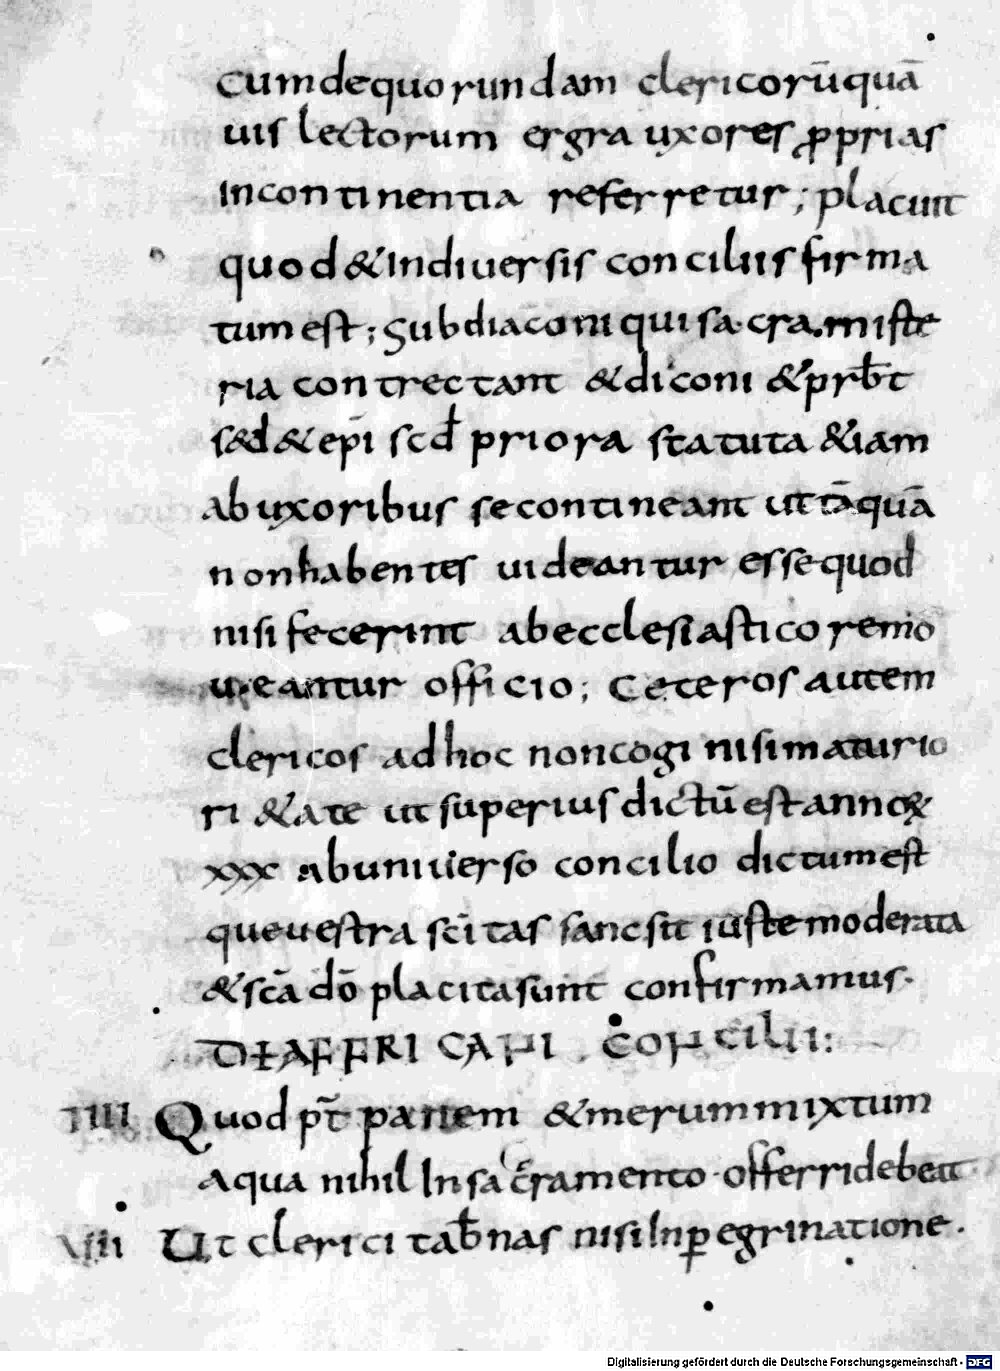 cumdequorundam clericorūquā
uis lectorum ergra uxores ꝓprias
incontinentia referretur; placuit
quod&indiuersis conciliis firma
tum est; Subdiaconi qui sacra miste
ria contrectant &diconi &prƀt
s&d &epī scđ priora statuta &iam
ab uxoribus se contineant ut tāquā
non habentes uideantur esse quod
nisi fecerint ab ecclesiastico remo
ueantur officio; Ceteros autem
clericos ad hoc non cogi nisi maturio
ri &ate ut superius dictū est annoꝝ
xxx ab uniuerso concilio dictum est
que uestra scītas sancsit iuste moderata
&scā dō placita sunt confirmamus.
DE AFFRICANI CONCILII:
IIII Quod pt̄ panem &merum mixtum
aqua nihil In sacramento offerri debeat
VIII Ut clerici taƀnas nisi In ꝑegrinatione.
Digitalisierung gefördert durch die Deutsche Forschungsgemeinschaft - DFG